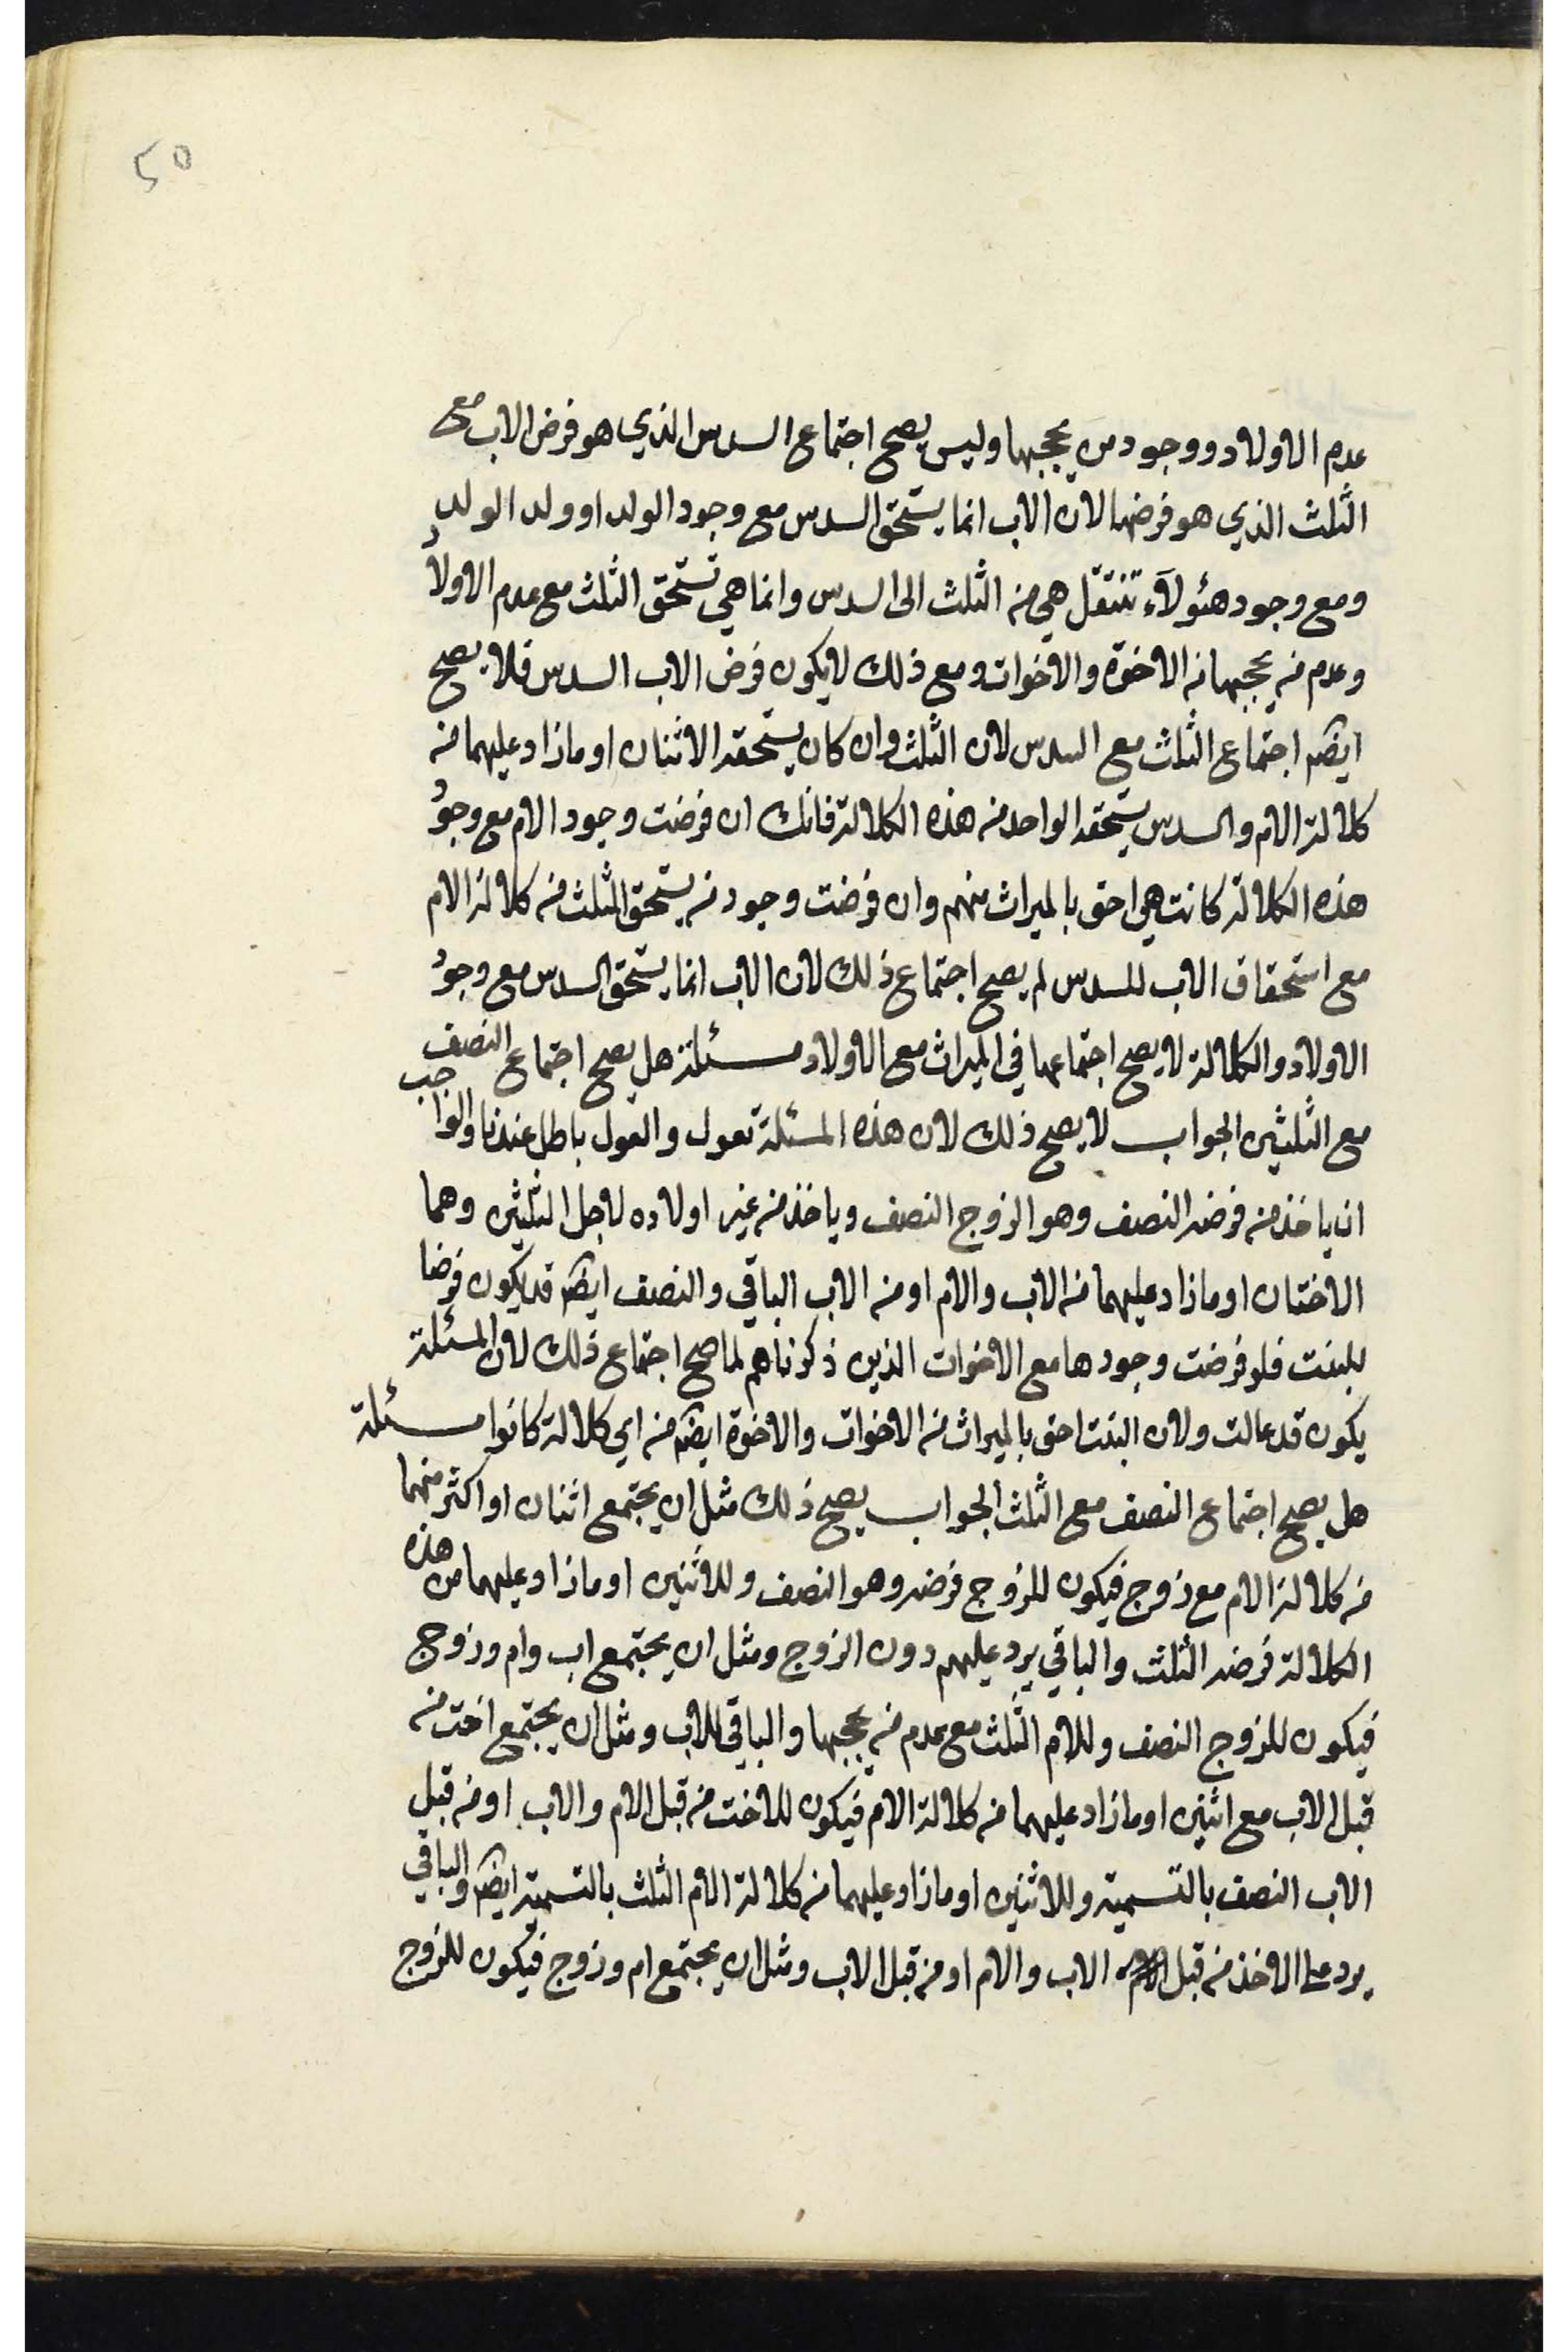 50
عدم الاولاد ووجود من يحجبها وليس يصح اجتماع السدس الذي هو فرض الاب مع
الثلث الذي هو فرضها لان الاب انما يستحق السدس مع وجود الولد او ولد الولد
ومع وجود هئولآء تنتقل هي من الثلث الى السدس وانما هي تستحق الثلث مع عدم الاولاد
وعدم من يحجبها من الاخوة والاخوات ومع ذلك لا يكون فرض الاب السدس فلا يصح
ايضم اجتماع الثلث مع السدس لان الثلث وان كان يستحقه الاثنان او مازاد عليهما من
كلالة الام والسدس يستحقه الواحد من هذه الكلالة فانك ان فرضت وجود الام مع وجود
هذه الكلالة كانت هي احق بالميراث منهم وان فرضت وجود من يستحق الثلث من كلالة الام
مع استحقاق الاب للسدس لم يصح اجتماع ذلك لان الاب انما يستحق السدس مع وجود
الاولاد والكلالة لا يصح اجتماعها في الميراث مع الاولاد مسئلة هل يصح اجتماع النصف
مع الثلثين الجواب لا يصح ذلك لان هذه المسئلة تعول والعول باطل عندنا والواجب
ان ياخذ من فرضه النصف وهو الزوج النصف وياخذ من غير اولاده لاجل الثلثين وهما
الاختان او مازاد عليهما من الاب والام او من الاب الباقي والنصف ايضم قد يكون فرضا
للبنت فلو فرضت وجودها مع الاخوات الذين ذكرناهم لما صح اجتماع ذلك لان المسئلة
يكون قد عالت ولان البنت احق بالميراث من الاخوات والاخوة ايضم من اي كلالة كانوا مسئلة
هل يصح اجتماع النصف مع الثلث الجواب يصح ذلك مثل ان يجتمع اثنان او اكثر منهما
من كلالة الام مع زوج فيكون للزوج فرضه وهو النصف وللاثنين او مازاد عليهما من هذه
الكلالة فرضه الثلث والباقي يرد عليهم دون الزوج ومثل ان يجتمع اب وام وزوج
فيكون للزوج النصف وللام الثلث مع عدم من يحجبها والباقي للاب ومثل ان يجتمع اخت من
قبل الاب مع اثنين او مازاد عليهما من كلالة الام فيكون للاخت من قبل الام والاب او من قبل
الاب النصف بالتسمية وللاثنين او مازاد عليهما من كلالة الام الثلث بالتسمية ايضم والباقي
يرد على الاخذ من قبل الاب والام او من قبل الاب ومثل ان يجتمع ام وزوج فيكون للزوج